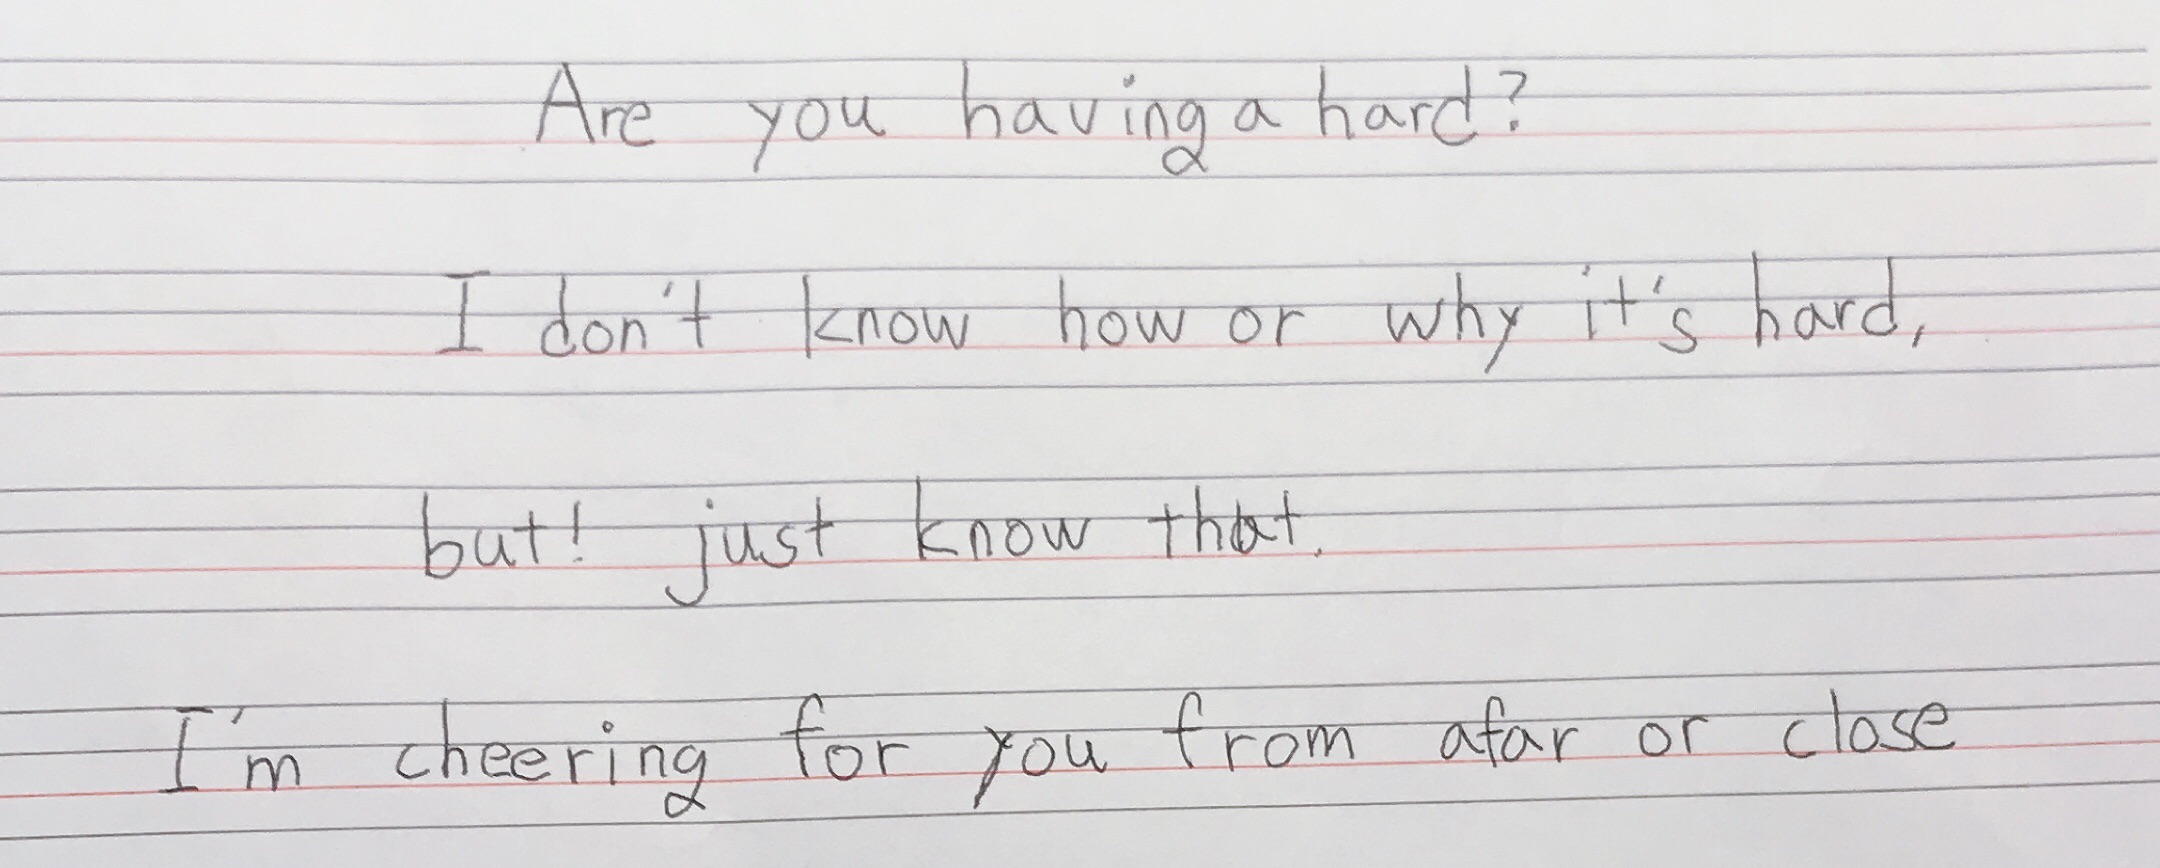 Are you having a hard?
I don't know how or why it's hard,
but! just know that.
I'm cheering for you from afar or close